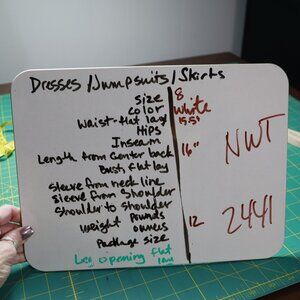 Dresses/Jumpsuits/Skirts
Size 8
Color White
Waist flat lay 15.5"
Hips
Inseam
Length from Center back 16"
Bust flat lay
sleeve from neck line
sleeve from Shoulder
Shoulder to shoulder
weight pounds
ounces 12
Package size
Leg opening flat
NWT
2441